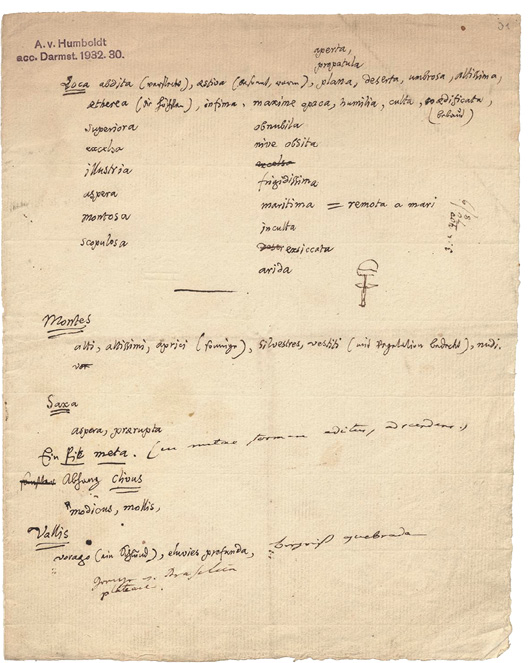 A. v. Humboldt
acc. Darmst. 1932. 30.
31
aperta,
propatula
Loca abdita (versteckte), aestiva warm), plana, deserta, umbrosa, altissima,
etherea (die infima. maxime opaca, humilia, culta, aedificata,
(bebaut)
superiora obnubila
excelsa nive obsita
illustria excelsa
aspera frigidissima
montosa maritima = remota a mari
scopulosa inculta
exsiccata
arida
Montes
alti, altissimi, aprici (sonnige), silvestres, vestiti (mit Vegetation bedeckt), nudi.
Saxa
aspera, praerupta
Ein Pik meta. (in metae formam editus,
Abhang clivus
modicus, mollis,
Vallis
vorago (ein Schlund), eluvies profunda, begriff quebrada